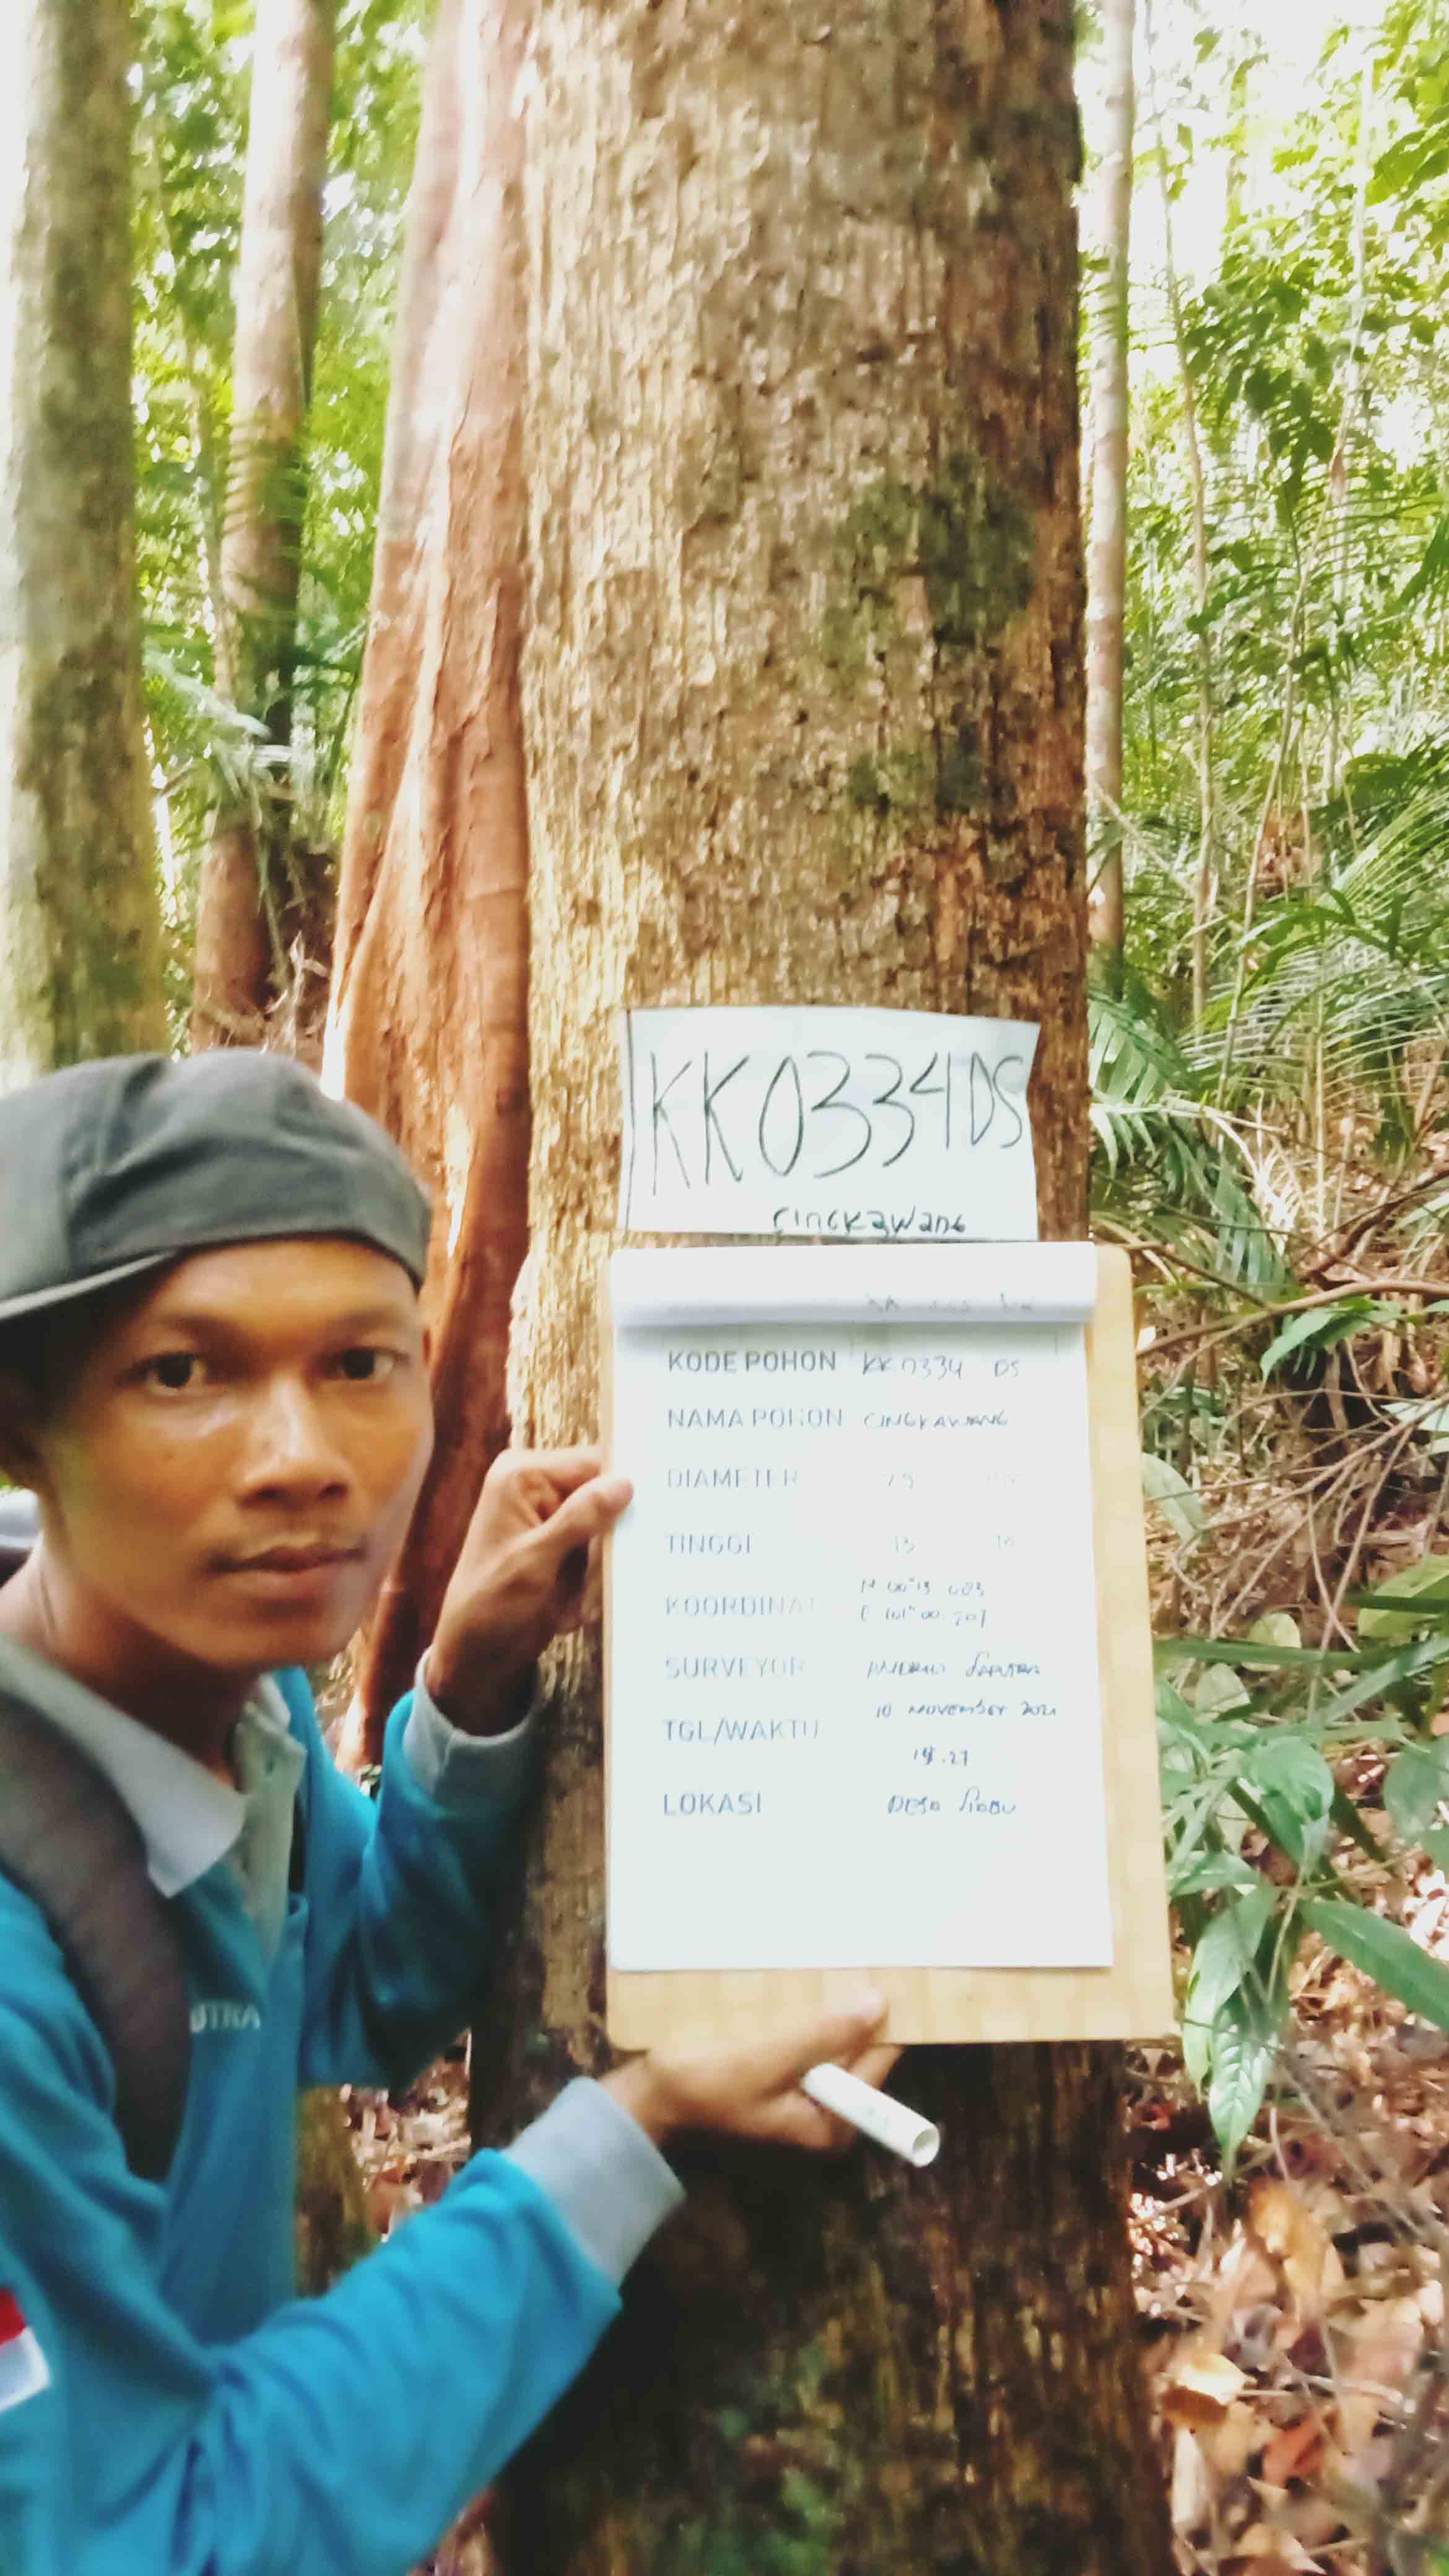 KK0334DS
cingkawang
KODE POHON KK 0334 DS
NAMA POHON CINGKAWANG
DIAMETER
TINGGI 13
KOORDINAT N 00°13 003
E 101°00.207
SURVEYOR SAPUTRA
TGL/WAKTU 10 NOVEMBER 2021
.27
LOKASI DESA SIABU
UTRA